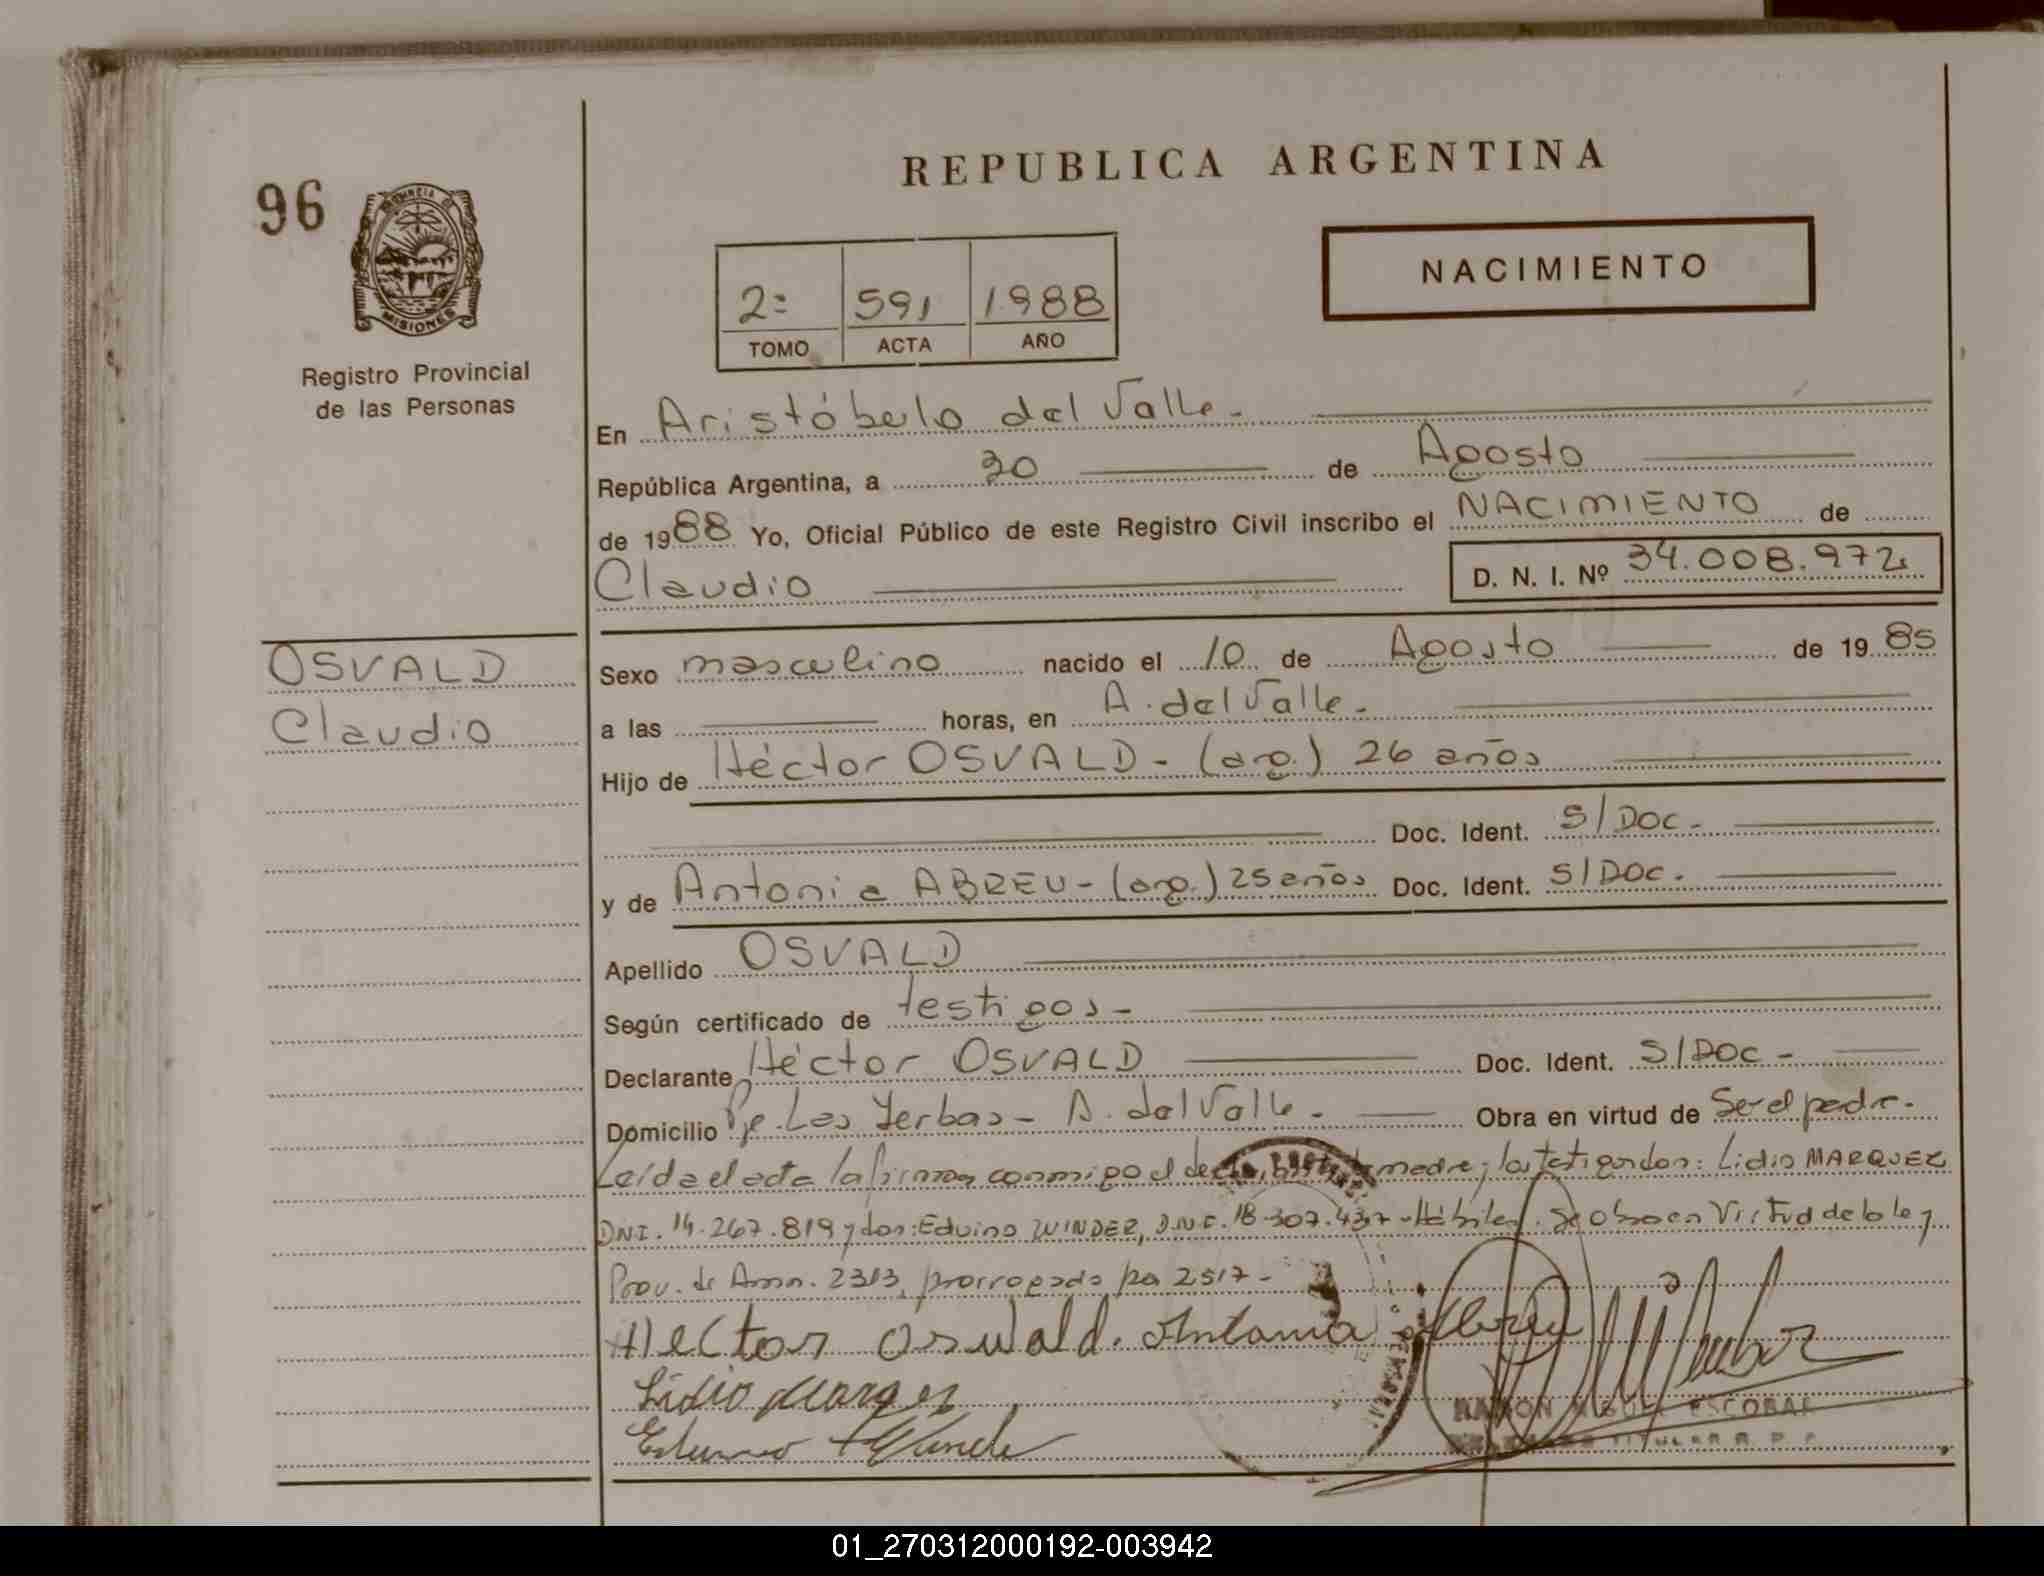 REPUBLICA ARGENTINA
96
PROVINCIA DE
MISIONES
Registro Provincial
de las Personas
NACIMIENTO
2º 591 1988
TOMO ACTA AÑO
En Aristóbulo del Valle.-
República Argentina, a 30 de Agosto
de 1988 Yo, Oficial Público de este Registro Civil inscribo el NACIMIENTO de
Claudio D. N. I. Nº 34.008.972.
OSVALD
Claudio
Sexo masculino nacido el 10 de Agosto de 1985
a las horas, en A. del Valle.-
Hijo de Héctor OSVALD - (arg.) 26 años
Doc. Ident. S/DOC.-
y de Antonia ABREU - (arg.) 25 años Doc. Ident. S/DOC.
Apellido OSVALD
Según certificado de testigos-
Declarante Héctor OSVALD Doc. Ident. S/DOC-
Domicilio Pje. Las Yerbas - A. del Valle. Obra en virtud de Ser el padre.
Leída el acta la firman conmigo el madre; los testigos don: Lidio MARQUEZ
DNI. 14.267.819 y don: Eduino WINDER, D.N.I. 18.307.437 - Hábiles. Se obra en Virtud de la ley
Prov. de Amn. 2313, prorrogada por 2517-
Hector Oswald. Antonia Abreu
Lidio Marques
RAMON MIGUEL ESCOBAR
TITULAR R. P. P.
01_270312000192-003942